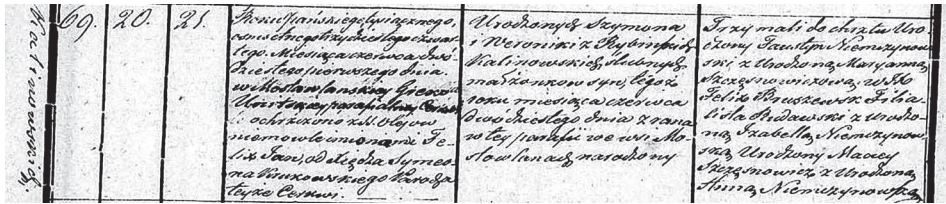 Kalinowski
69.
20.
21.
Roku Pańskiego tysiącznego,
osmsetnego trzydziestego czwar-
tego. Miesiąca czerwca dwó-
dziestego pierwszego dnia.
w Mosłowlanskiey Greko
Unitskiey parafialney Cerkwi
ochrzczono z SS. Olejow
niemowle imionami Fe-
lix Jan, od Xiędza Symeo-
na Krukowskiego Parocha
teyże Cerkwi.
Urodzonych Szymona
i Weroniki z Rybinskich
Kalinowskich ślubnych
małżonkow syn, tegoż
roku miesiąca czerwca
dwódziestego dnia z rana
w tey parafii we wsi Mo-
stowlanach narodzony
Trzymali do chrztu Uro-
dzony Faustyn Niemczynow-
ski z Urodzoną Maryanną
Szczęsnowiczową, W. Xo
Felix Bruszewsk Filia-
lista Rudawski z Urodzo-
ną Izabellą Niemczynow-
ską, Urodzony Maciey
Szczęsnowicz z Urodzoną
Anną Niemczynowską